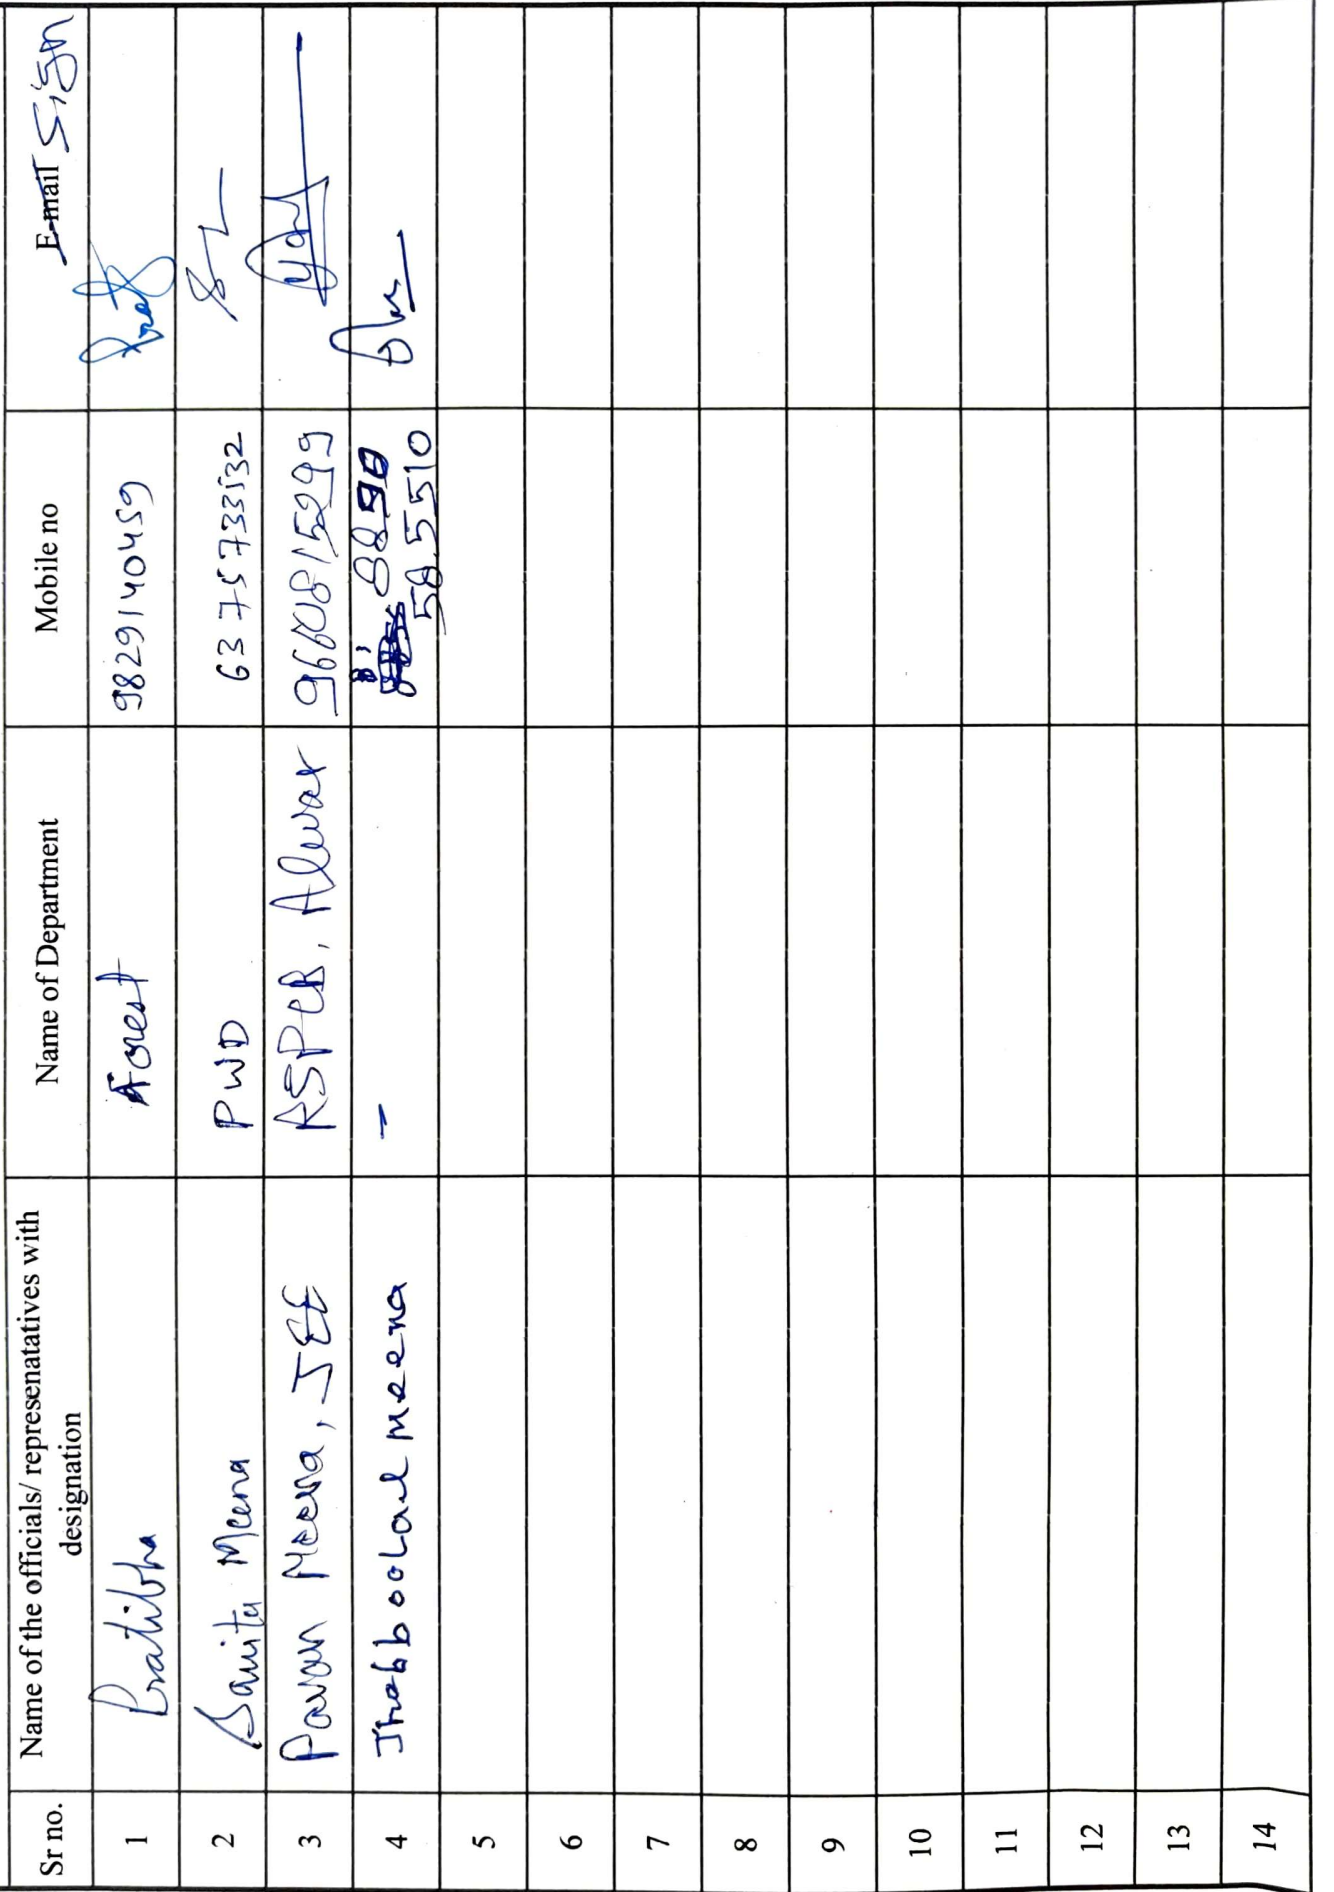 Sr no. Name of the officials/ represenatatives with designation Name of Department Mobile no E-mail Sign
1 Pratibha Forest 9829140459
2 Sanita Meena PWD 6375733132
3 Pavan Meena, JEE RSPCB, Alwar 9660815299
4 Jhabboolal meena - 8890 585510
5
6
7
8
9
10
11
12
13
14